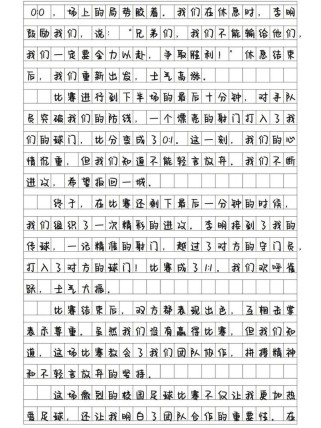 0:0，场上的局势胶着。我们在休息时，李明
鼓励我们，说：“兄弟们，我们不能输给他们，
我们一定要全力以赴，争取胜利！”休息结束
后，我们重新出发，士气高涨。
比赛进行到下半场的最后十分钟，对手队
员突破我们的防线，一个漂亮的射门打入了我
们的球门，比分变成了0:1。这一刻，我们的心
情沉重，但我们知道不能轻言放弃。我们不断
进攻，希望扳回一城。
终于，在比赛还剩下最后一分钟的时候，
我们组织了一次精彩的进攻。李明接到了我的
传球，一记精准的射门，越过了对方的守门员，
打入了对方的球门！比赛成了1:1，我们欢呼雀
跃，士气大振。
比赛结束后，双方都表现出色，互相击掌
表示尊重。虽然我们没有赢得比赛，但我们知
道，这场比赛教会了我们团队协作，拼搏精神
和不轻言放弃的坚持。
这场激烈的校园足球比赛不仅让我更加热
爱足球，还让我明白了团队合作的重要性。在